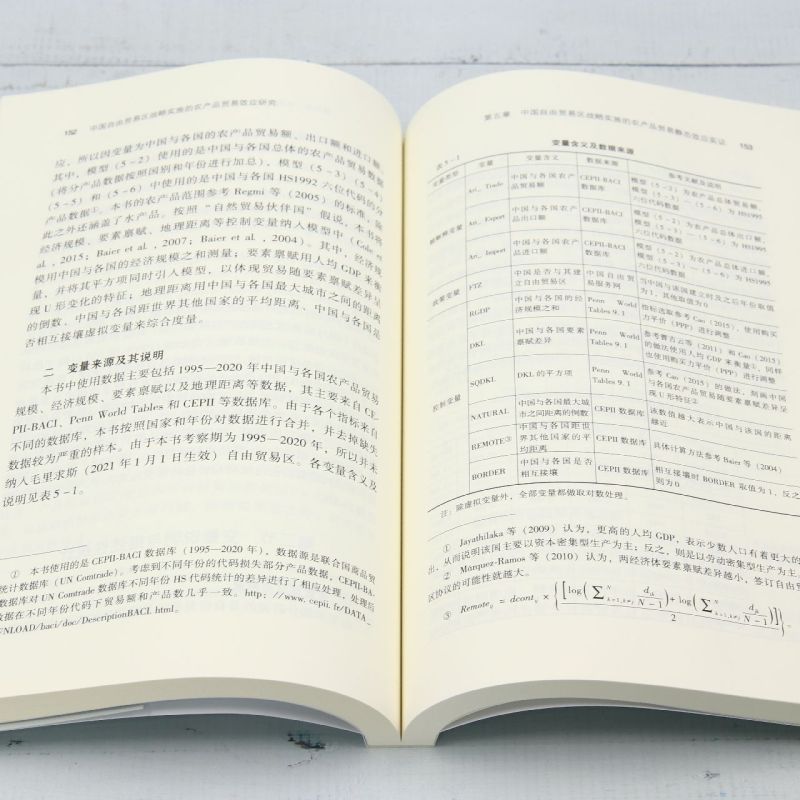 152 中国自由贸易区战略实施的农产品贸易效应研究
应，所以因变量为中国与各国的农产品贸易额、出口额和进口额。
其中，模型（5-2）使用的是中国与各国总体的农产品贸易数据
（将分产品数据按照国别和年份进行加总），模型（5-3）（5-4）
（5-5）和（5-6）中使用的是中国与各国HS1992六位代码的分
产品数据①。本书的农产品范围参考 Regmi 等（2005）的标准，除
此之外还涵盖了水产品。按照“自然贸易伙伴国”假说，本书将
经济规模、要素禀赋、地理距离等控制变量纳入模型中（Cole et
al.，2015；Baier et al.，2007；Baier et al.，2004）。其中，经济规
模用中国与各国的经济规模之和测量；要素禀赋用人均 GDP 来衡
量，并将其平方项同时引入模型，以体现贸易随要素禀赋差异呈
现 U 形变化的特征；地理距离用中国与各国最大城市之间的距离
的倒数、中国与各国距世界其他国家的平均距离、中国与各国是
否相互接壤虚拟变量来综合度量。
二 变量来源及其说明
本书中使用数据主要包括 1995—2020 年中国与各国农产品贸易
规模、经济规模、要素禀赋以及地理距离等数据，其主要来自 CE-
PII-BACI、Penn World Tables 和 CEPII 等数据库。由于各个指标来自
不同的数据库，本书按照国家和年份对数据进行合并，并去掉缺失
数据较为严重的样本。由于本书考察期为 1995—2020 年，所以并未
纳入毛里求斯（2021 年 1 月 1 日生效）自由贸易区。各变量含义及
说明见表 5-1。
① 本书使用的是 CEPII-BACI 数据库（1995—2020 年），数据源是联合国商品贸
统计数据库（UN Comtrade）。考虑到不同年份的代码损失部分产品数据，CEPII-BA-
数据库对 UN Comtrade 数据库不同年份 HS 代码统计的差异进行了相应处理，处理后
数据在不同年份代码下贸易额和产品数几乎一致。http：//www.cepii.fr/DATA_
NLOAD/baci/doc/DescriptionBACI.html。
第五章 中国自由贸易区战略实施的农产品贸易静态效应实证 153
表 5-1 变量含义及数据来源
变量类型 变量 变量含义 数据来源 参考文献及说明
被解释变量
Ari_Trade 中国与各国农产品贸易额 CEPII-BACI 数据库 模型（5-2）为农产品总体贸易额，模型（5-3）—（5-6）为 HS1995 六位代码数据
Ari_Export 中国与各国农产品出口额 CEPII-BACI 数据库 模型（5-2）为农产品总体出口额，模型（5-3）—（5-6）为 HS1995 六位代码数据
Ari_Import 中国与各国农产品进口额 CEPII-BACI 数据库 模型（5-2）为农产品总体进口额，模型（5-3）—（5-6）为 HS1995 六位代码数据
政策变量 FTZ 中国是否与其建立自由贸易区 中国自由贸易服务网 当中国与该国建立时及之后年份取值为 1，其他取值为 0
控制变量
RGDP 中国与各国的经济规模之和 Penn World Tables 9.1 指标选取参考 Cao（2015），使用购买力平价（PPP）进行调整
DKL 中国与各国要素禀赋差异 Penn World Tables 9.1 参考曹吉云等（2011）和 Cao（2015）的做法使用人均 GDP 来衡量①，同样也使用购买力平价（PPP）进行调整
SQDKL DKL 的平方项 Penn World Tables 9.1 参考 Cao（2015）的做法，刻画中国与各国农产品贸易随要素禀赋差异呈现 U 形特征②
NATURAL 中国与各国最大城市之间距离的倒数 CEPII 数据库 该数值越大表示中国与该国的距离越近
REMOTE③ 中国与各国距世界其他国家的平均距离 CEPII 数据库 具体计算方法参考 Baier 等（2004）
BORDER 中国与各国是否相互接壤 CEPII 数据库 相互接壤时 BORDER 取值为 1，反之则为 0
注：除虚拟变量外，全部变量都做取对数处理。
① Jayathilaka 等（2009）认为，更高的人均 GDP，表示少数人口有着更大的
出，从而说明该国主要以资本密集型生产为主；反之，则是以劳动密集型生产为主
② Márquez-Ramos 等（2010）认为，两经济体要素禀赋差异越小，签订自由贸
区协议的可能性就越大。
③ Remote_ij = dcont_ij × {[log(∑^N_{k=1,k≠j} d_ik/(N-1)) + log(∑^N_{k=1,k≠i} d_jk/(N-1))]/2}。